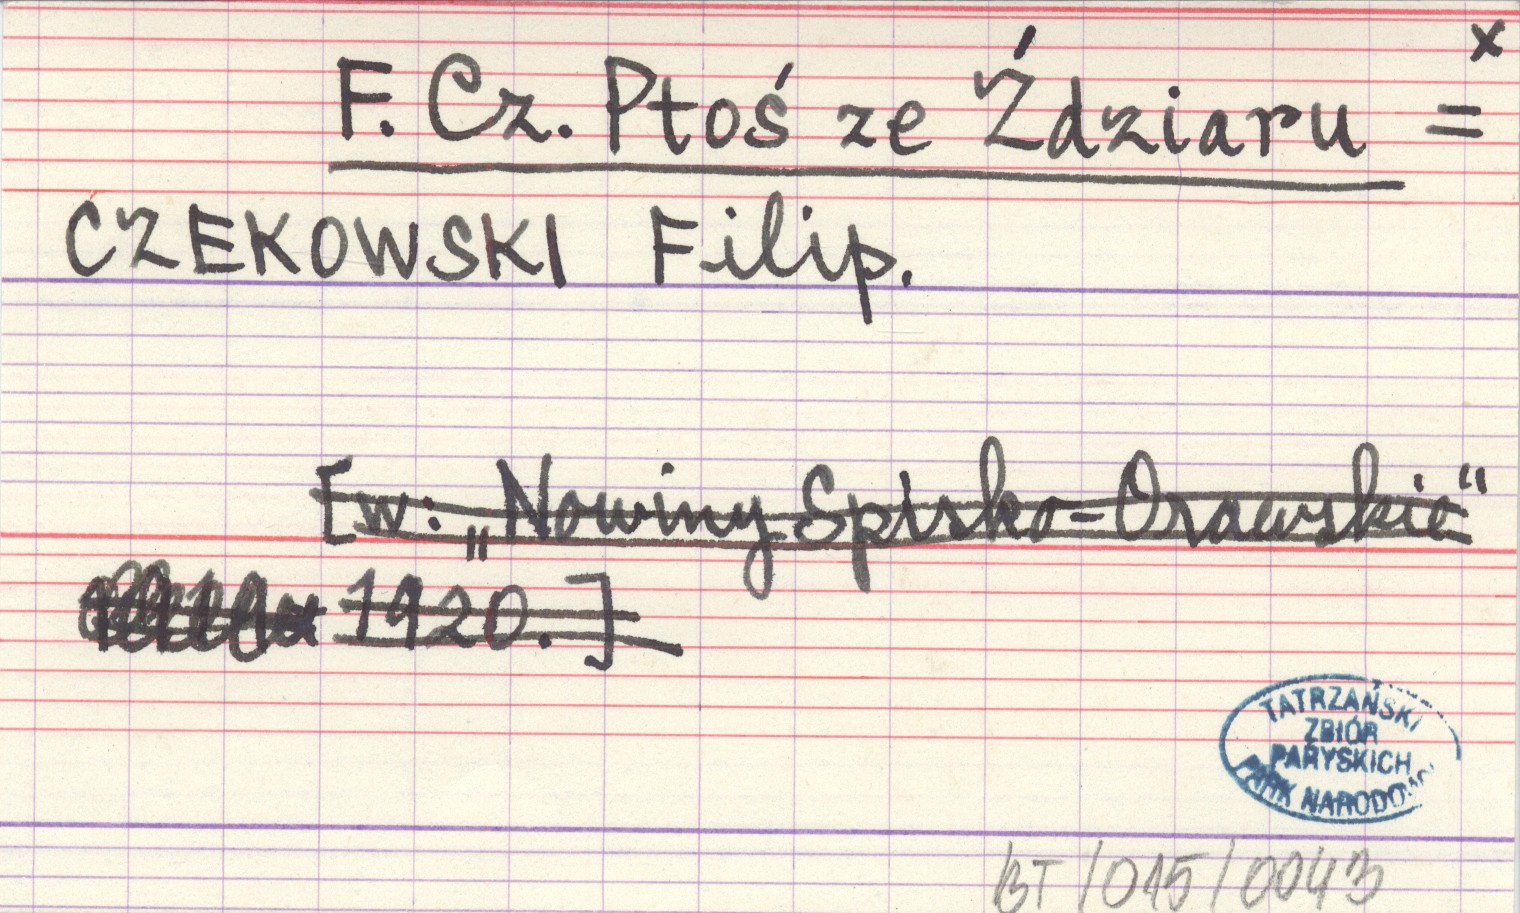 x
F. Cz. Ptoś ze Ździaru =
CZEKOWSKI Filip.
[w: „Nowiny Spisko-Orawskie"
1920.]
TATRZAŃSKI
ZBIÓR
PARYSKICH
PARK NARODOWY
BT/015/0043